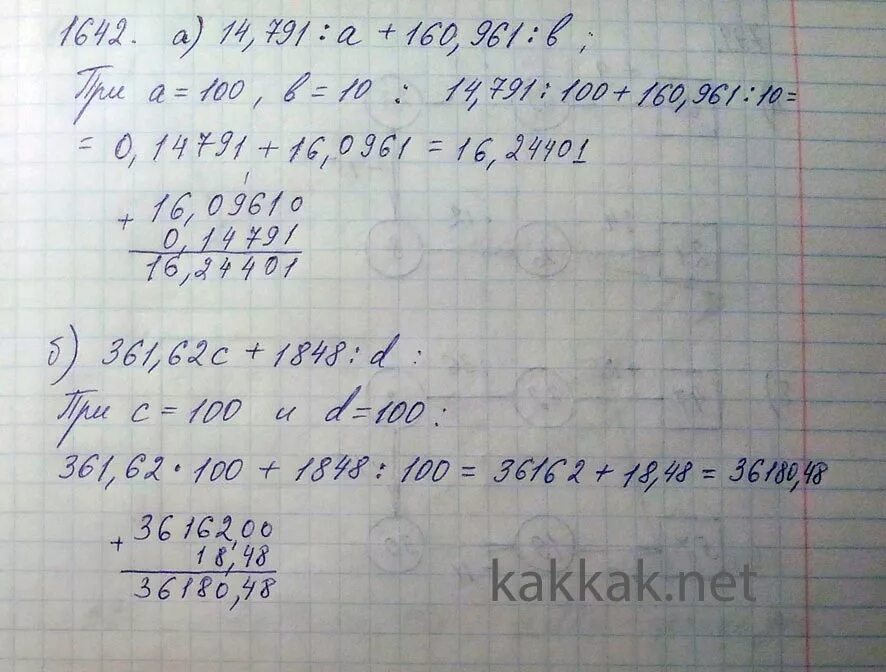 1642. а) 14,791 : a + 160,961 : b ;
При a = 100, b = 10 : 14,791 : 100 + 160,961 : 10 =
= 0,14791 + 16,0961 = 16,24401
+ 16,09610
0,14791
16,24401
б) 361,62c + 1848 : d :
При c = 100 и d = 100 :
361,62 · 100 + 1848 : 100 = 36162 + 18,48 = 36180,48
+ 36162,00
18,48
36180,48
kakkak.net